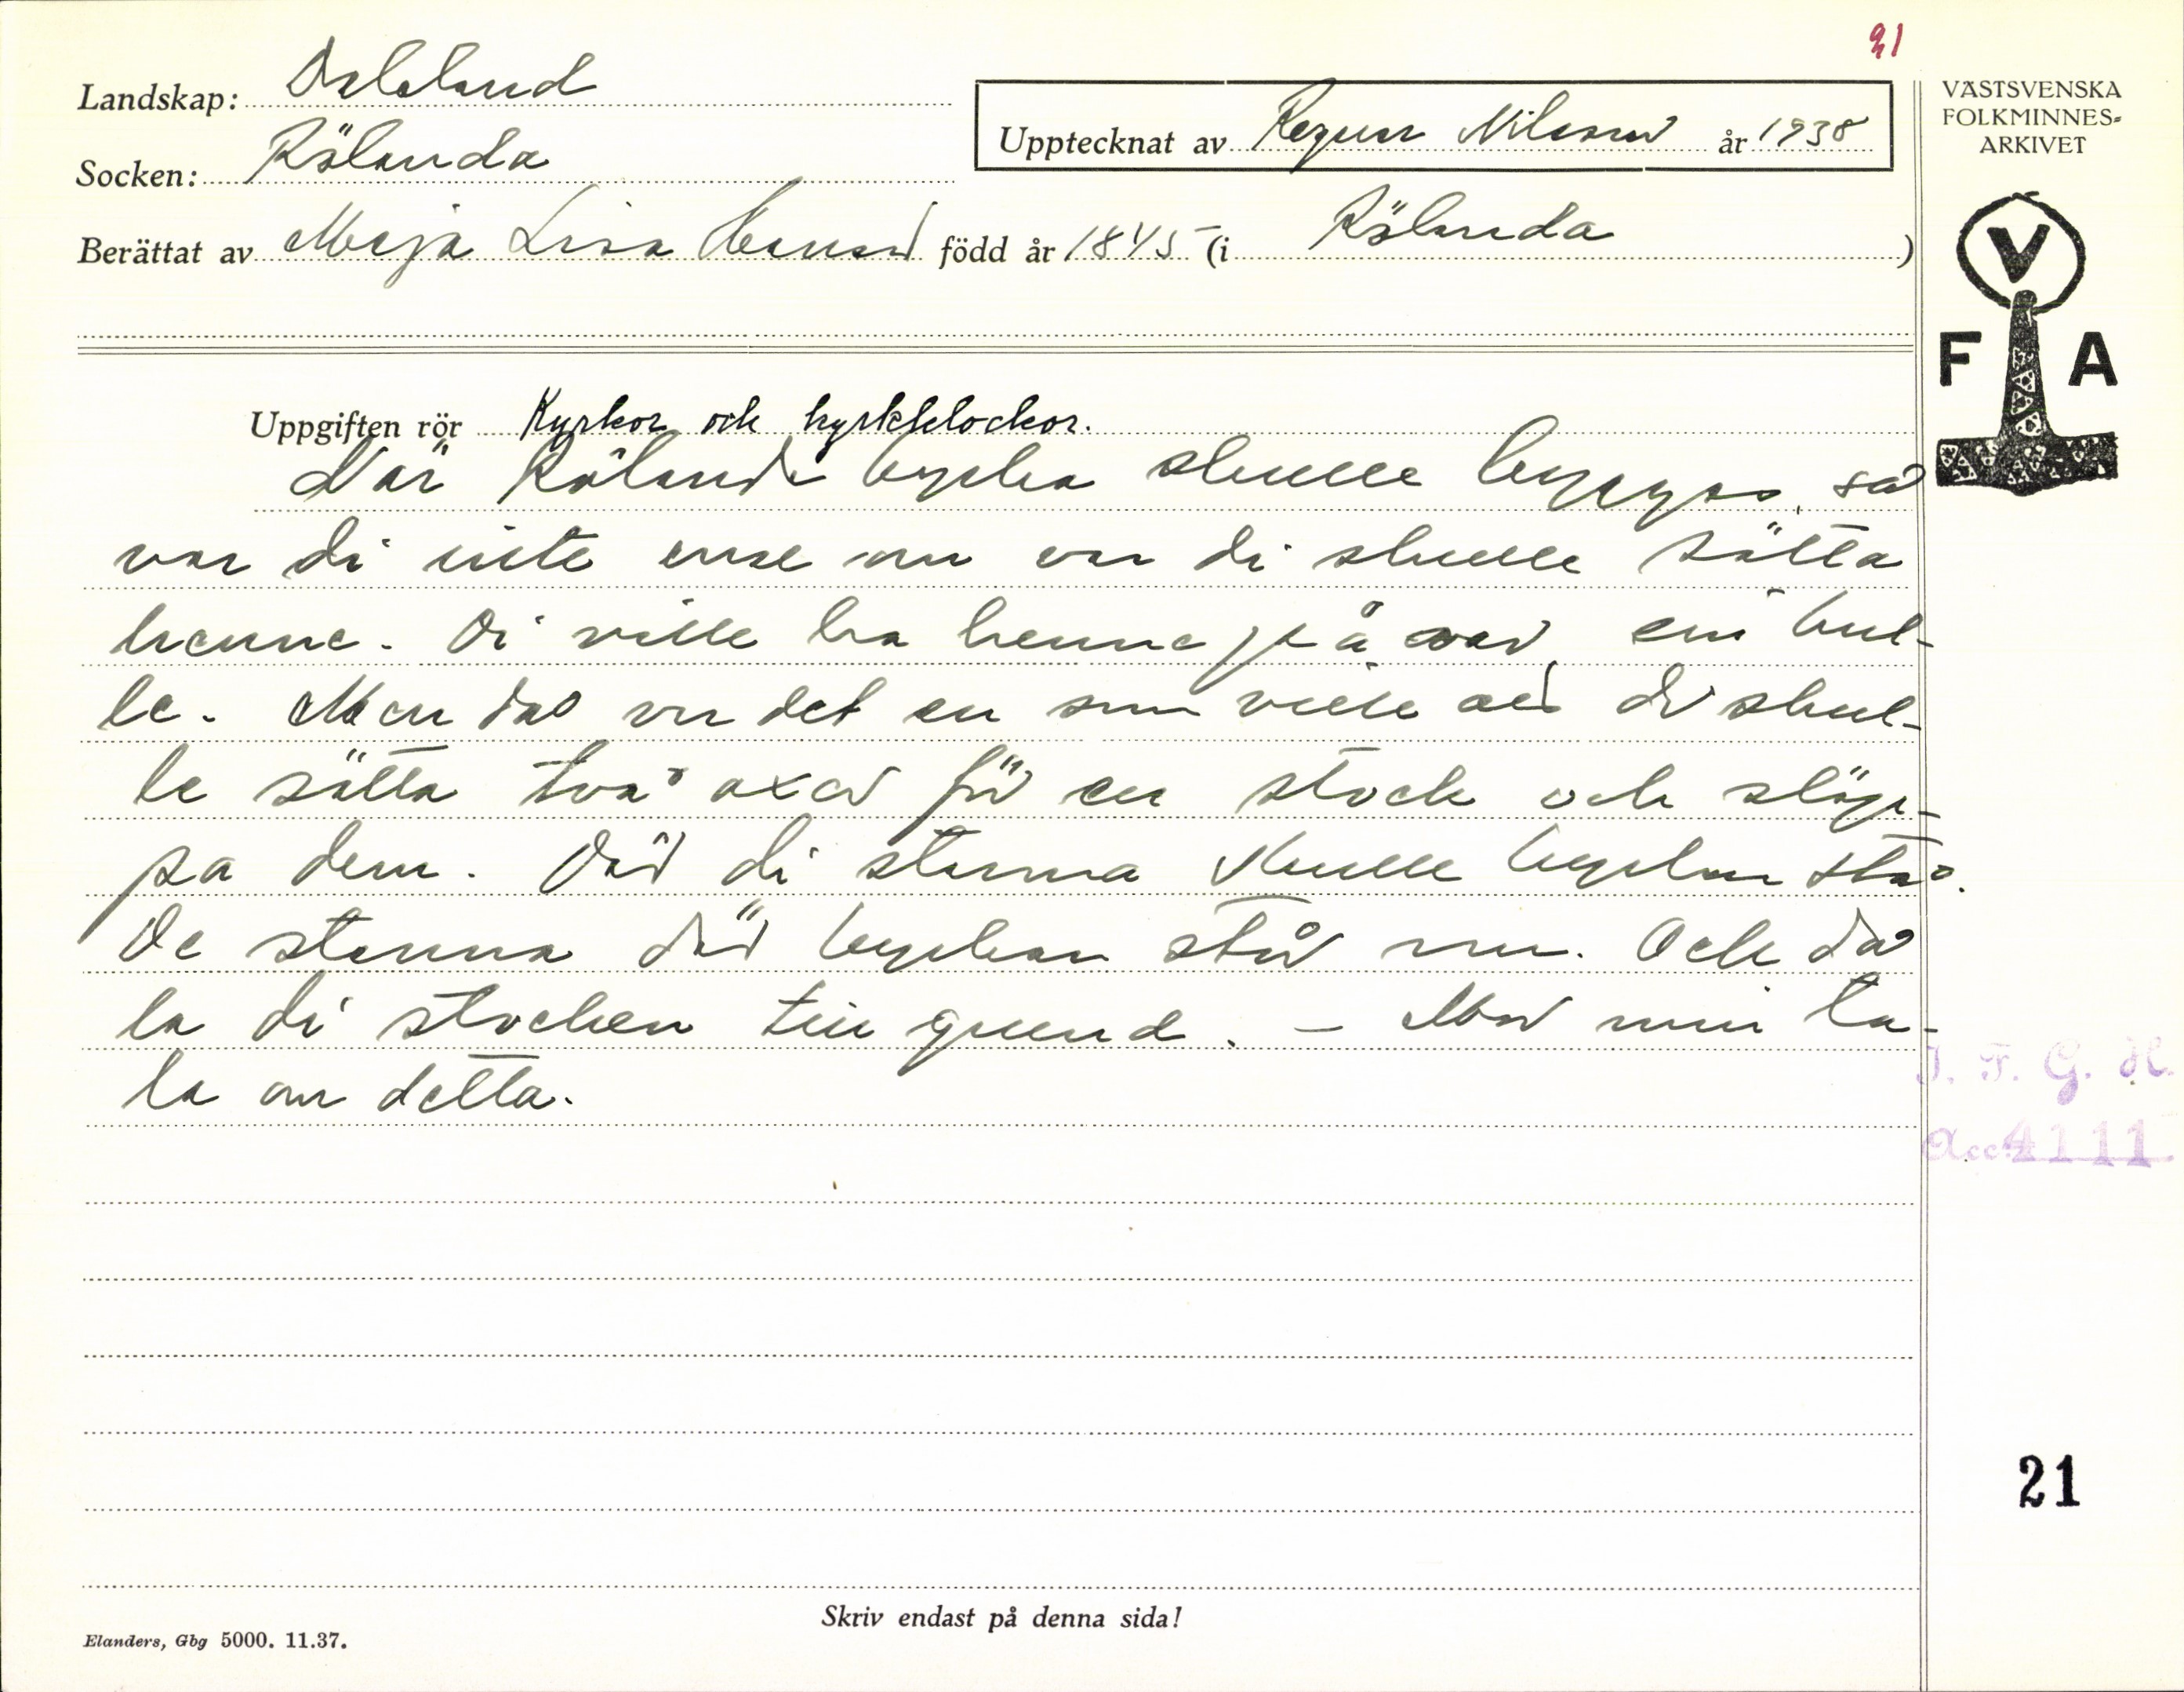 21
Landskap: Dalsland
Upptecknat av Ragnar Nilsson år 1938
VÄSTSVENSKA
FOLKMINNES-
ARKIVET
Socken: Rölanda
Berättat av Maja Lisa född år 1845 (i Rölanda)
V
F A
Uppgiften rör Kyrkor och kyrkklockor.
När Rölanda kyrka skulle byggas, så
var di inte ense om var di skulle sätta
henne. Di ville ha henne på en kul-
le. Men då var det en som ville att di skul-
le sätta två oxar för en stock och släp-
pa dem. Där di stanna skulle kyrkan stå.
De stanna där kyrkan står nu. Och då
la di stocken till grund. – Mor min ta-
la om detta.
I. F. G. H.
Acc. 4111
21
Skriv endast på denna sida!
Elanders, Gbg 5000. 11.37.